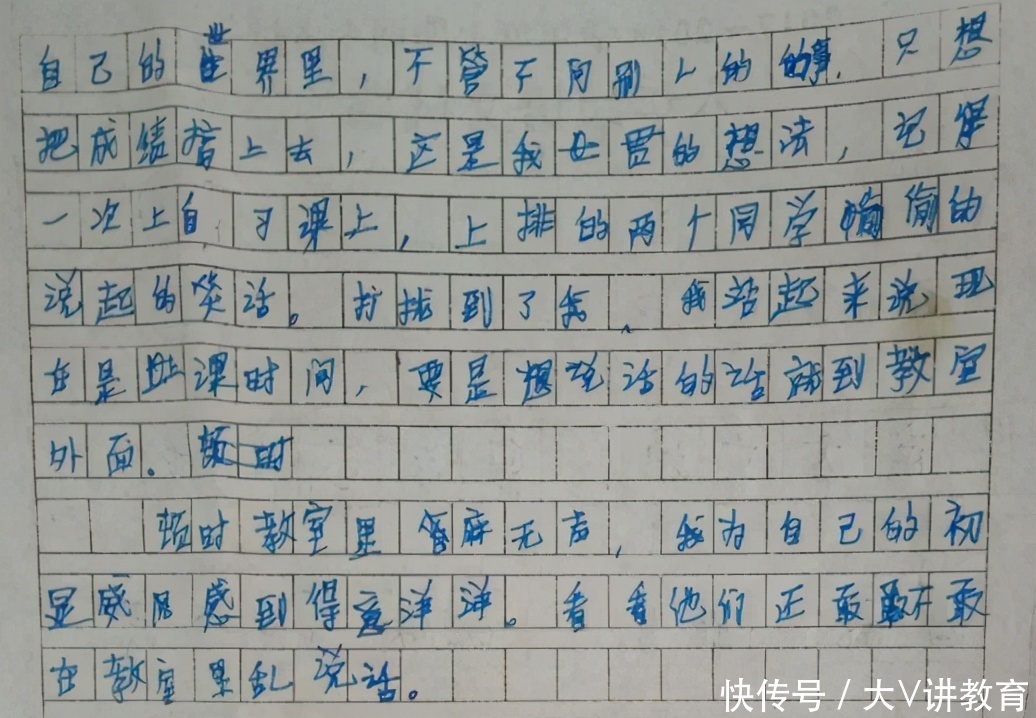 自己的世界里，不管不问别人的的事，只想
把成绩搞上去，这是我贯的想法，记得
一次上自习课上，上排的两个同学偷偷的
说起的笑话。打扰到了我，我站起来说现
在是上课时间，要是想说话的话请到教室
外面。顿时
顿时教室里无声，我为自己的初
显威风感到得意洋洋。看看他们正敢敢不敢
在教室里乱说话。
快传号 / 大V讲教育